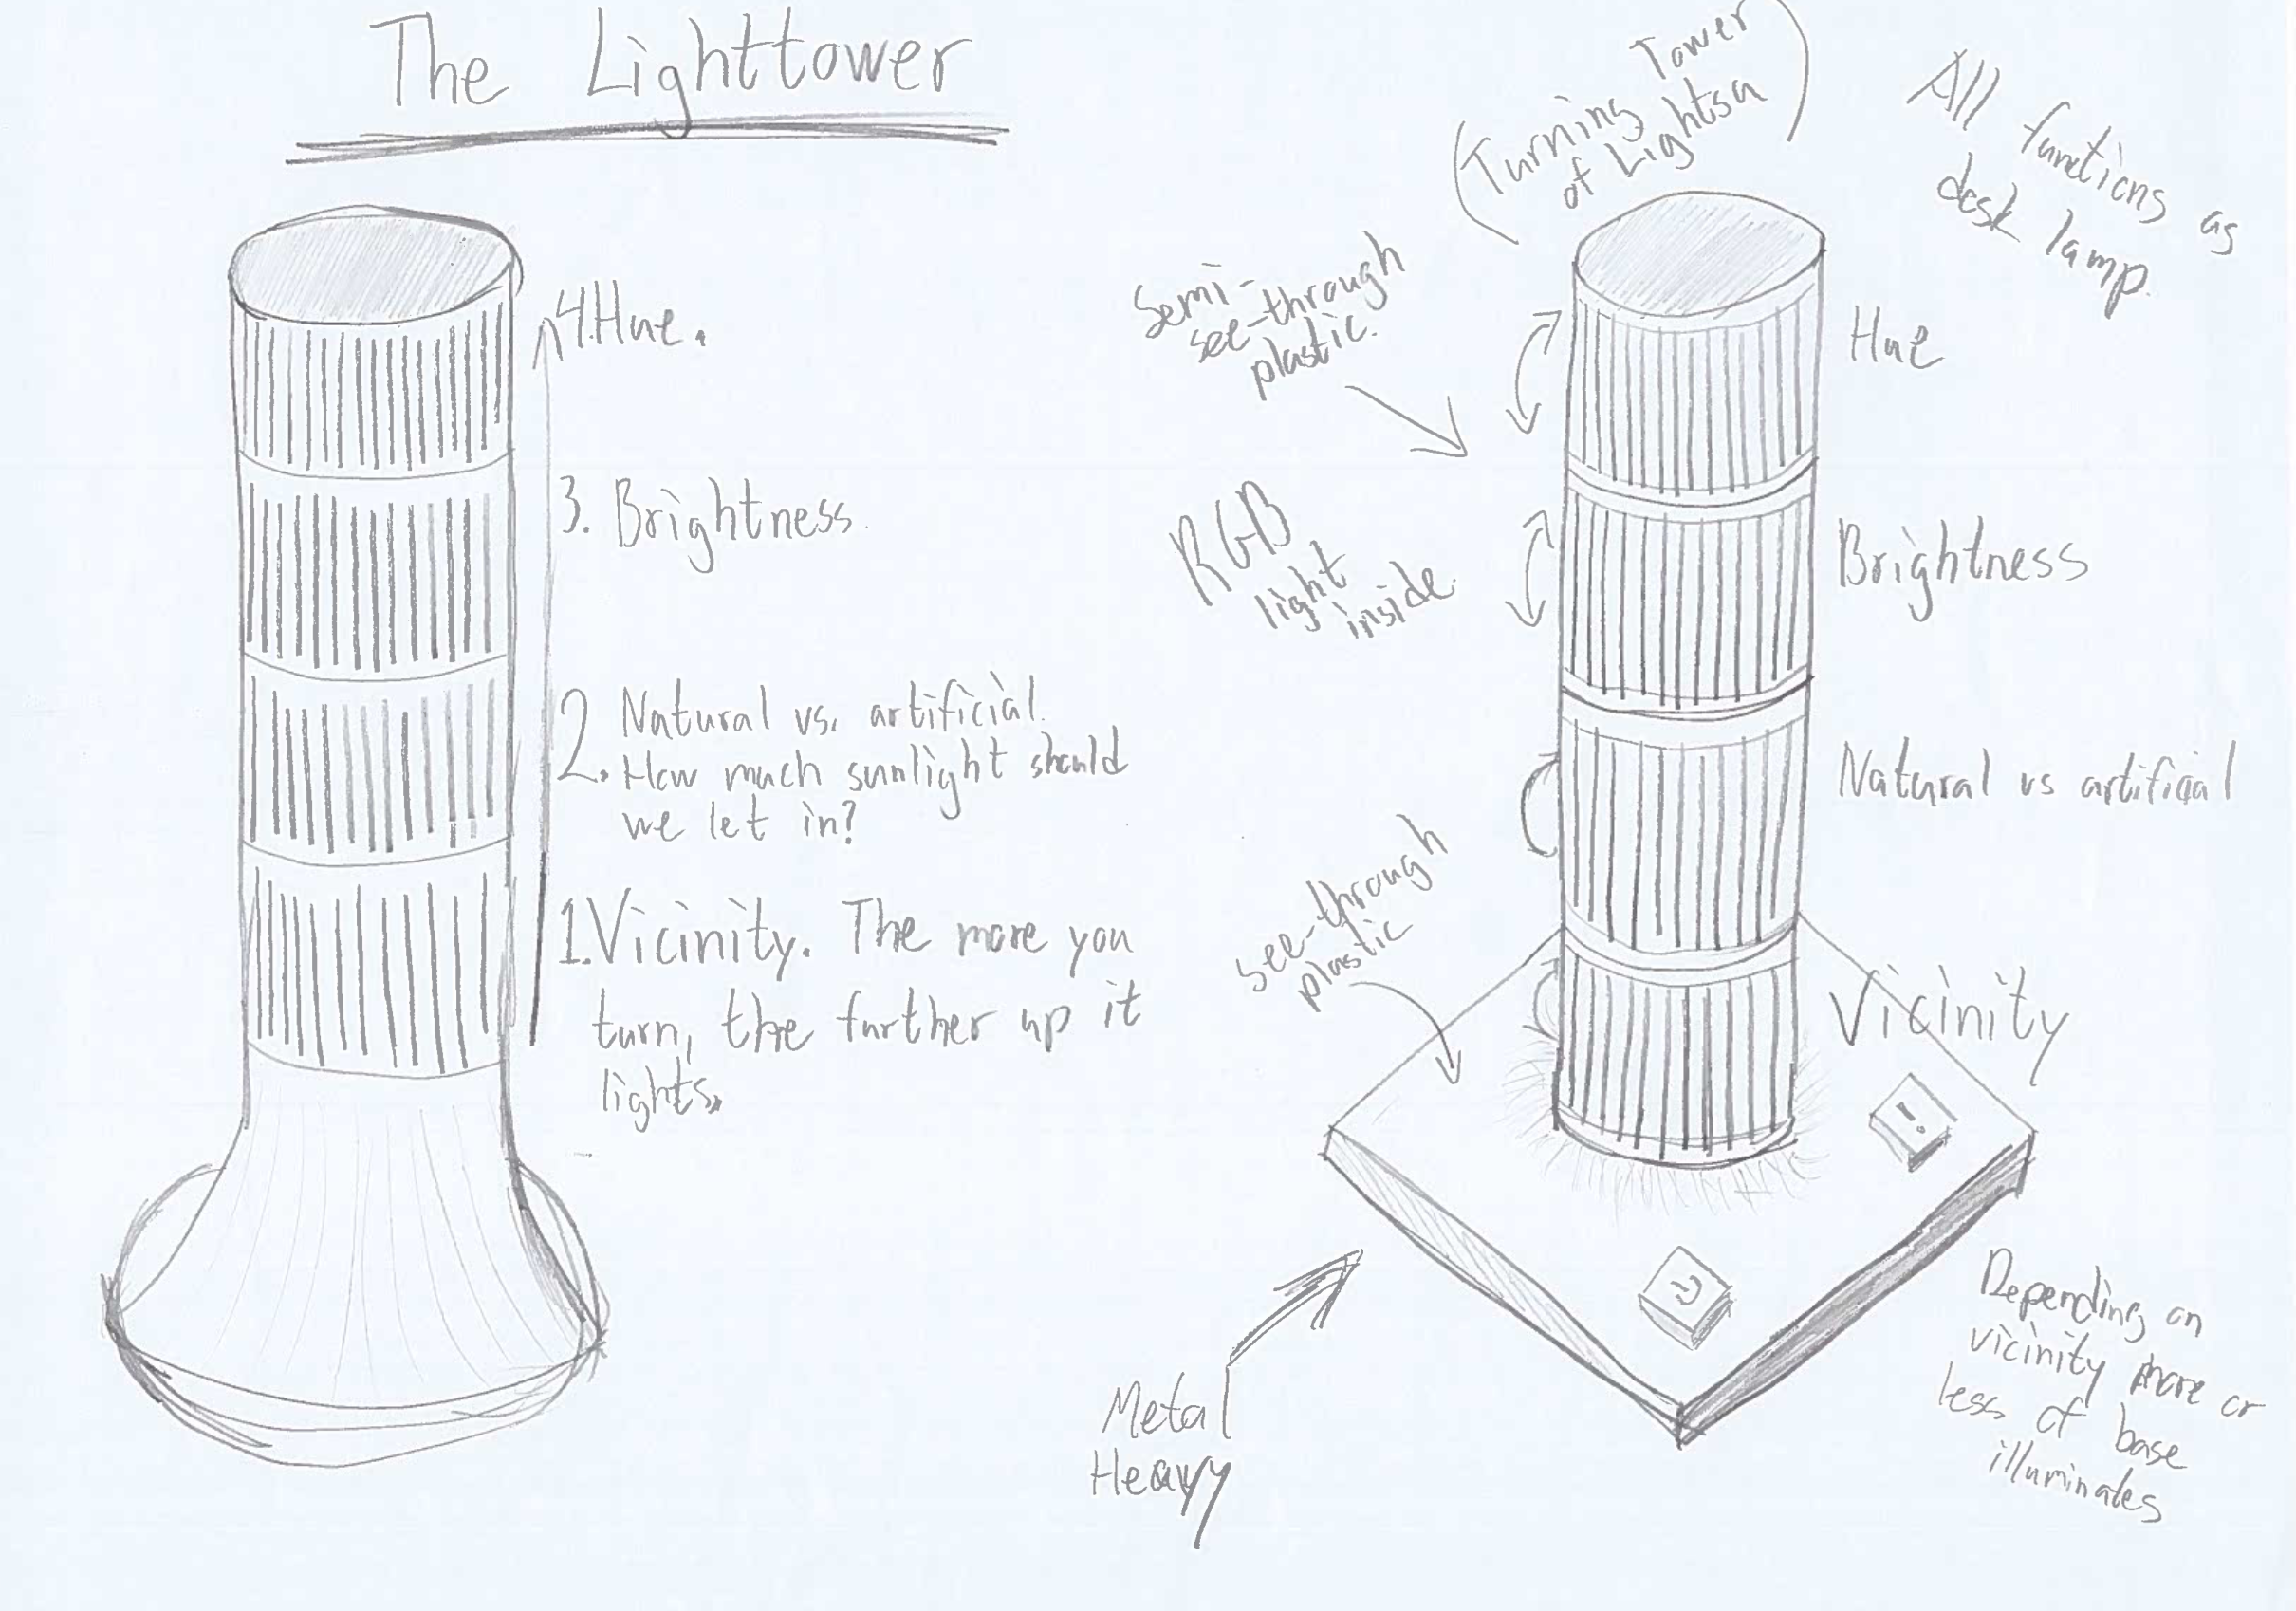 The Lighttower
4. Hue.
3. Brightness.
2. Natural vs. artificial.
How much sunlight should
we let in?
1. Vicinity. The more you
turn, the further up it
lights.
(Turning Tower
of Lightsa)
All functions as
desk lamp.
Semi-
see-through
plastic.
RGB
light
inside.
see-through
plastic
Hue
Brightness
Natural vs artificial
Vicinity
!
Metal
Heavy
Depending on
vicinity more or
less of base
illuminates